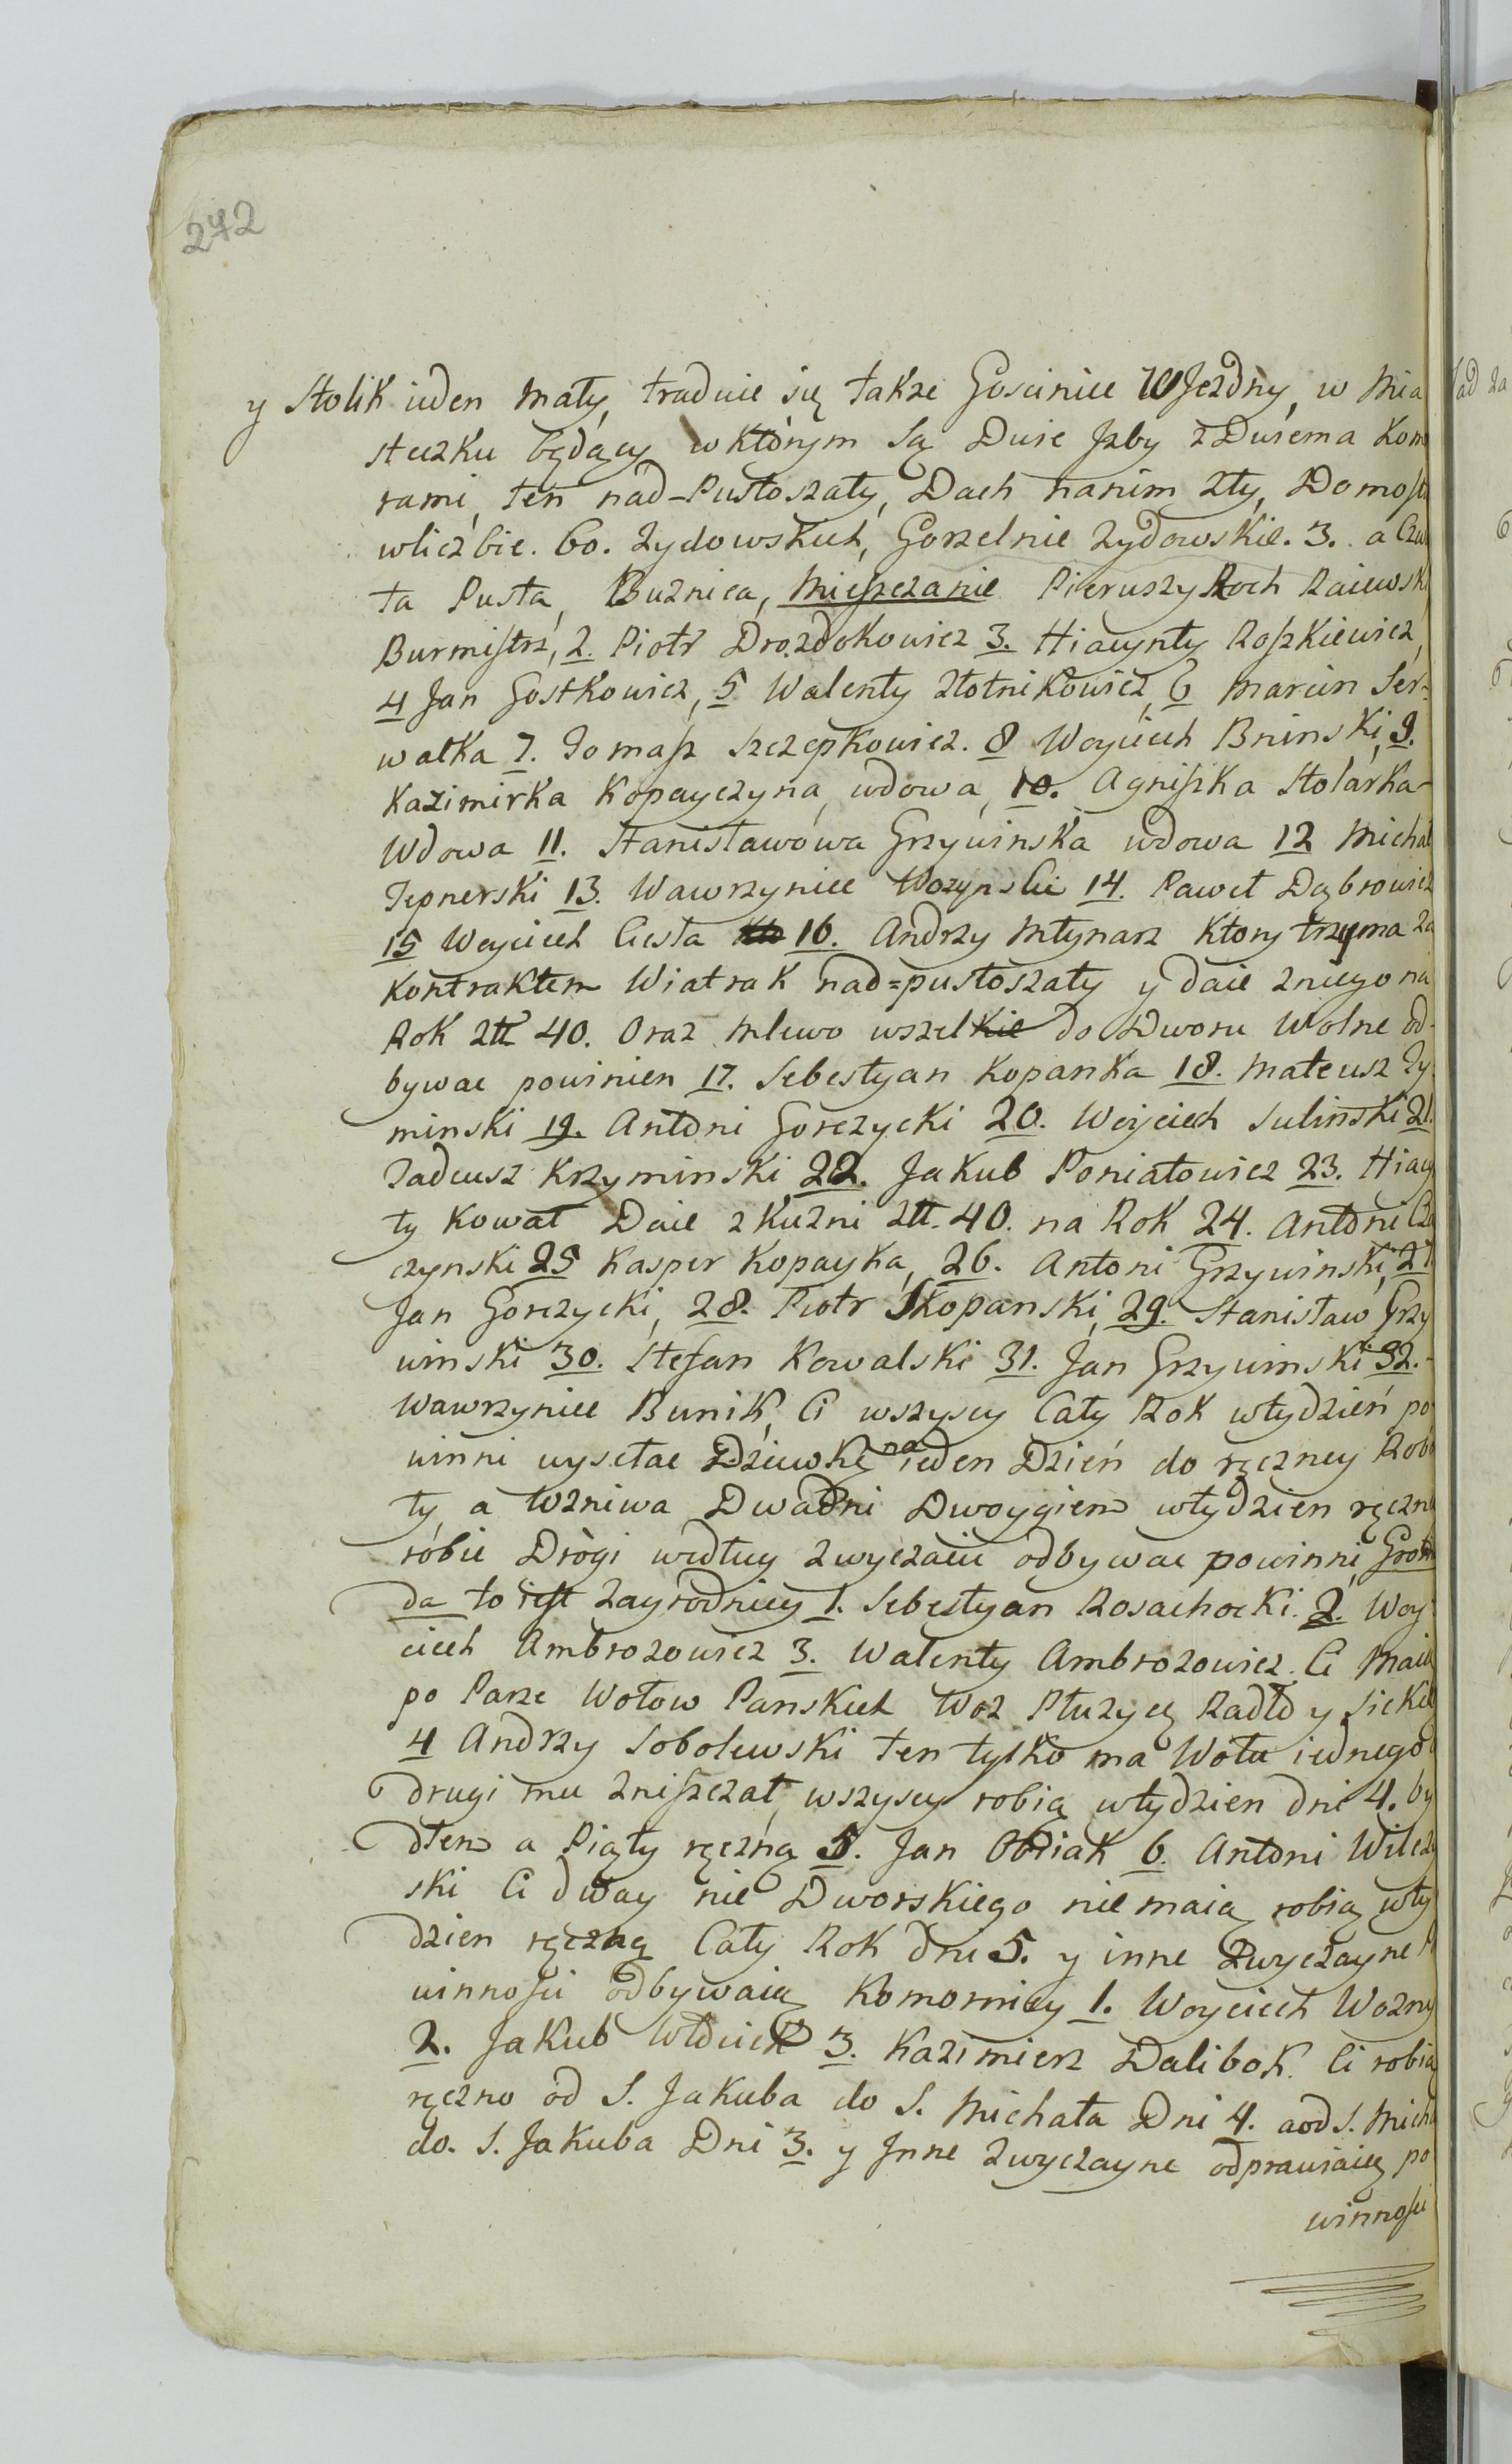 272
y Stolik ieden mały, traduie się także Gosciniec WJezdny, w Mia
steczku będący w którym są Dwie Jzby z Dwiema Kom
rami, ten nad-Pustoszały, Dach nanim zły, Domost
wliczbie. 60. Zydowskich, Gorzelnie Zydowskie. 3. a Czw
ta Pusta, Buznica, Mieszczanie Pierwszy Roch Raiewsk
Burmistrz, 2. Piotr Drozdokowicz 3. Hiacynty Roszkiewicz,
4 Jan Gostkowicz, 5 Walenty Złotnikowicz, 6 Marcin Ser-
watka 7. Tomasz Szczepkowicz. 8 Woyciech Bninski, 9.
Kazimirka Kopayczyna, wdowa, 10. Agniszka Stolarka
Wdowa 11. Stanisławowa Grzywinska wdowa 12 Michał
Tepnerski 13. Wawrzyniec Wozynski 14. Paweł Dąbrowicz
15 Woyciech Ciesla 16. Andrzy Młynarz Ktory trzyma za
Kontraktem Wiatrak nad=pustoszały y daie zniego na
Rok Złł 40. Oraz mlewo wszelkie do Dworu Wolne od-
bywac powinien 17. Sebestyan Kopanka 18. Mateusz Ty
minski 19. Antoni Gorczycki 20. Woyciech Sulinski 21.
Tadeusz Krzyminski 22. Jakub Poniatowicz 23. Hiacy
ty Kował Daie z Kuzni Złł. 40. na Rok 24. Antoni Cza
czynski 25 Kasper Kopayka, 26. Antoni Grzywinski, 27
Jan Gorczycki, 28. Piotr Skopanski, 29. Stanisław Grzy
winski 30. Stefan Kowalski 31. Jan Grzywinski 32.-
Wawrzyniec Bunik, Ci wszyscy Cały Rok wtydzień po
winni wysełac Dziewkę na ieden Dzień do ręczney Robo
ty, a wzniwa Dwadni Dwoygiem wtydzien ręczno
robic Drogi według zwyczaiu odbywac powinni, Grom
da to iest Zagrodnicy 1. Sebestyan Rosachocki. 2. Woy
ciech Ambrozowicz 3. Walenty Ambrozowicz. Ci Maią
po Parze Wołow Panskich Woz Płużycę Radło y Siekie
4 Andrzy Sobolewski ten tylko ma Wołu iednego
drugi mu zniszczał, wszyscy robią wtydzien dni 4. by
dłem a Piąty ręczną 5. Jan Obziak 6. Antoni Wilczy
ski Ci dway nic Dworskiego nie maią robią wty
dzien ręczną Cały Rok dni 5. y inne Zwyczayne P
winnosci odbywaią Komornicy 1. Woyciech Wozny
2. Jakub Włociek 3. Kazimierz Dalibok. Ci robią
ręczno od S. Jakuba do S. Michała Dni 4. aod S. Micha
do. S. Jakuba Dni 3. y Jnne zwyczayne odprawiaią po
winnosci